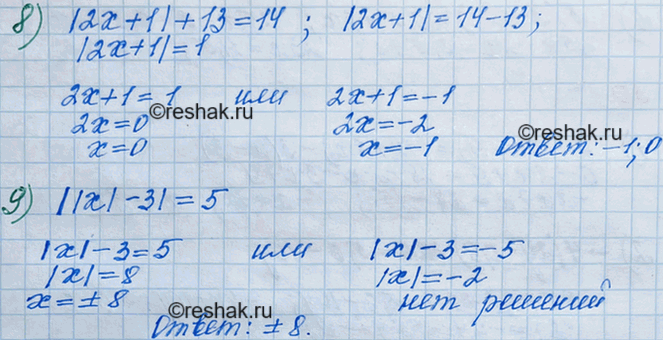 8) |2x+1|+13=14 ; |2x+1|=14-13;
|2x+1|=1
2x+1=1 или 2x+1=-1
©reshak.ru ©reshak.ru
2x=0 2x=-2
x=0 x=-1 Ответ: -1; 0
9) ||x|-3|=5
|x|-3=5 или |x|-3=-5
|x|=8 |x|=-2
x=±8 нет решений
©reshak.ru ©reshak.ru
Ответ: ±8.